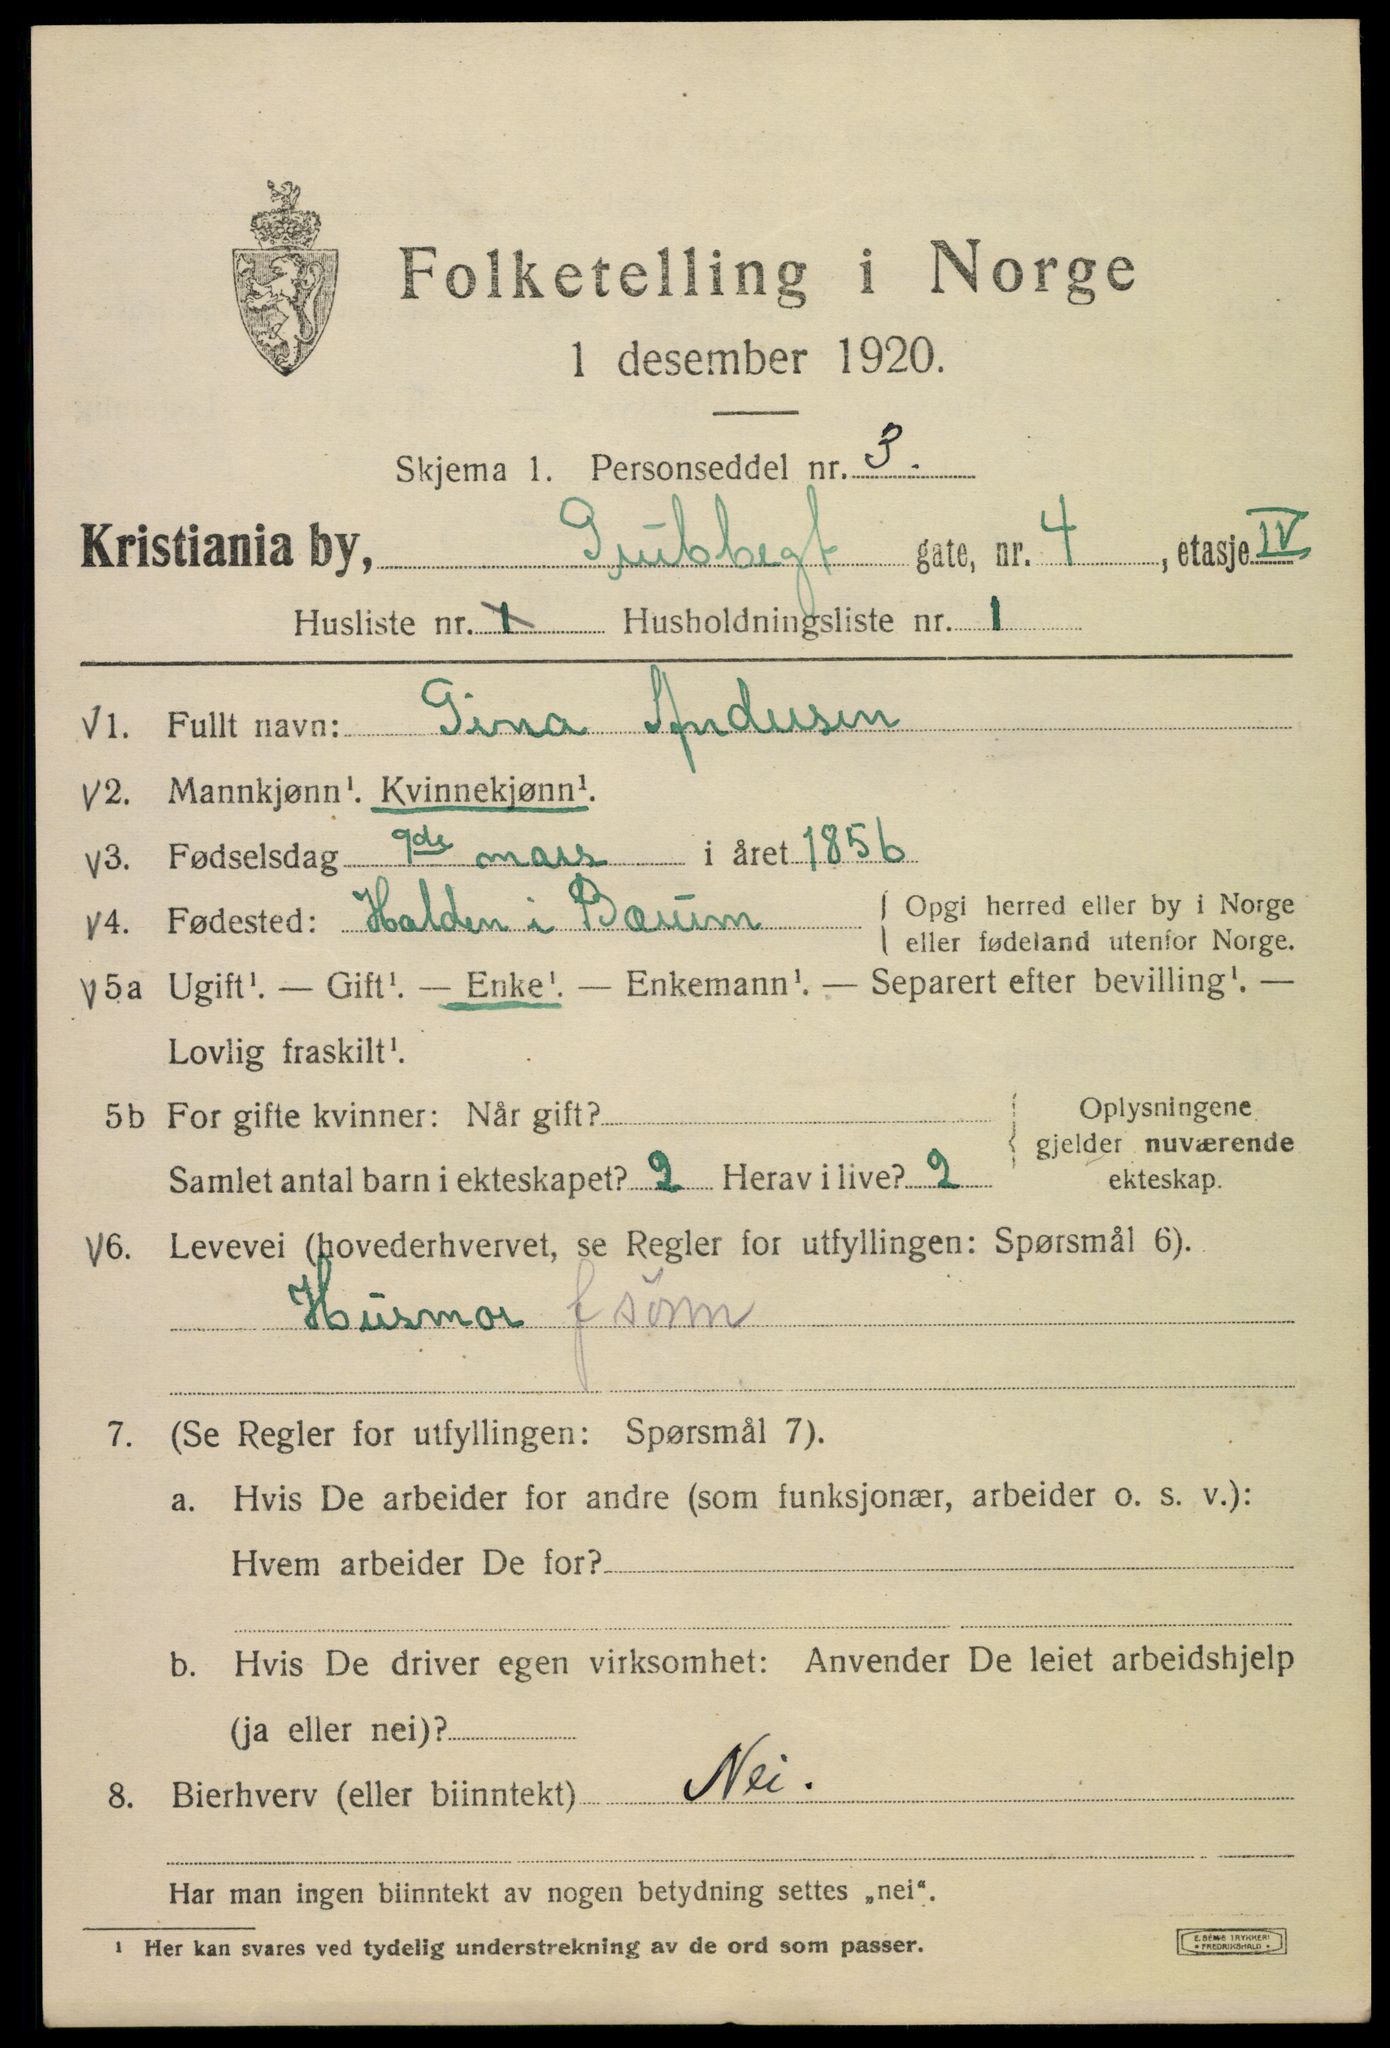 Folketelling i Norge
1 desember 1920.
Skjema 1. Personseddel nr. 3.
Kristiania by, Grubbegt gate, nr. 4, etasje IV
Husliste nr. 1 Husholdningsliste nr. 1
V1. Fullt navn: Gina Andersen
V2. Mannkjønn¹. Kvinnekjønn¹.
V3. Fødselsdag 9de mars i året 1856
V4. Fødested: Halden i Bærum { Opgi herred eller by i Norge
eller fødeland utenfor Norge.
V5a Ugift¹. — Gift¹. — Enke¹. — Enkemann¹. — Separert efter bevilling¹. —
Lovlig fraskilt¹.
5b For gifte kvinner: Når gift? { Oplysningene
gjelder nuværende
Samlet antal barn i ekteskapet? 2 Herav i live? 2 ekteskap.
V6. Levevei (hovederhvervet, se Regler for utfyllingen: Spørsmål 6).
Husmor f sønn
7. (Se Regler for utfyllingen: Spørsmål 7).
a. Hvis De arbeider for andre (som funksjonær, arbeider o. s. v.):
Hvem arbeider De for?
b. Hvis De driver egen virksomhet: Anvender De leiet arbeidshjelp
(ja eller nei)?
8. Bierhverv (eller biinntekt) Nei.
Har man ingen biinntekt av nogen betydning settes „nei“.
¹ Her kan svares ved tydelig understrekning av de ord som passer.
E. SEMS TRYKKERI
FREDRIKSHALD